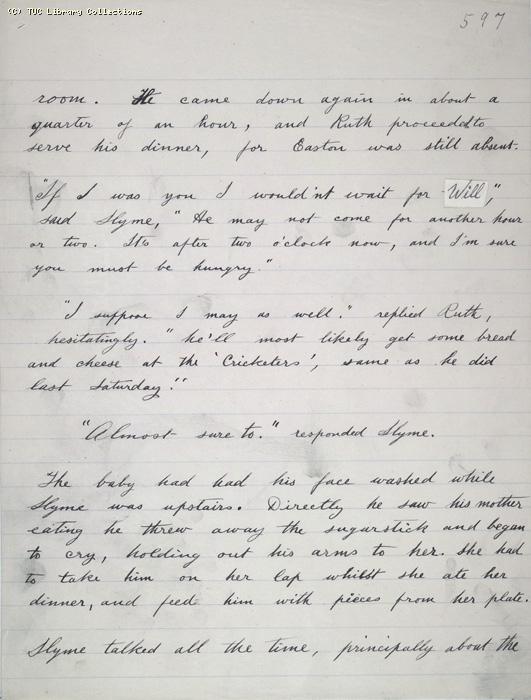 (C) TUC Library Collections
597
room. He came down again in about a
quarter of an hour, and Ruth proceeded to
serve his dinner, for Easton was still absent.
"If I was you I would'nt wait for Will,"
said Slyme, "He may not come for another hour
or two. It's after two o'clock now, and I'm sure
you must be hungry."
"I suppose I may as well." replied Ruth,
hesitatingly. "he'll most likely get some bread
and cheese at the 'Cricketers', same as he did
last Saturday."
"Almost sure to." responded Slyme.
The baby had had his face washed while
Slyme was upstairs. Directly he saw his mother
eating he threw away the sugarstick and began
to cry, holding out his arms to her. She had
to take him on her lap whilst she ate her
dinner, and feed him with pieces from her plate.
Slyme talked all the time, principally about the